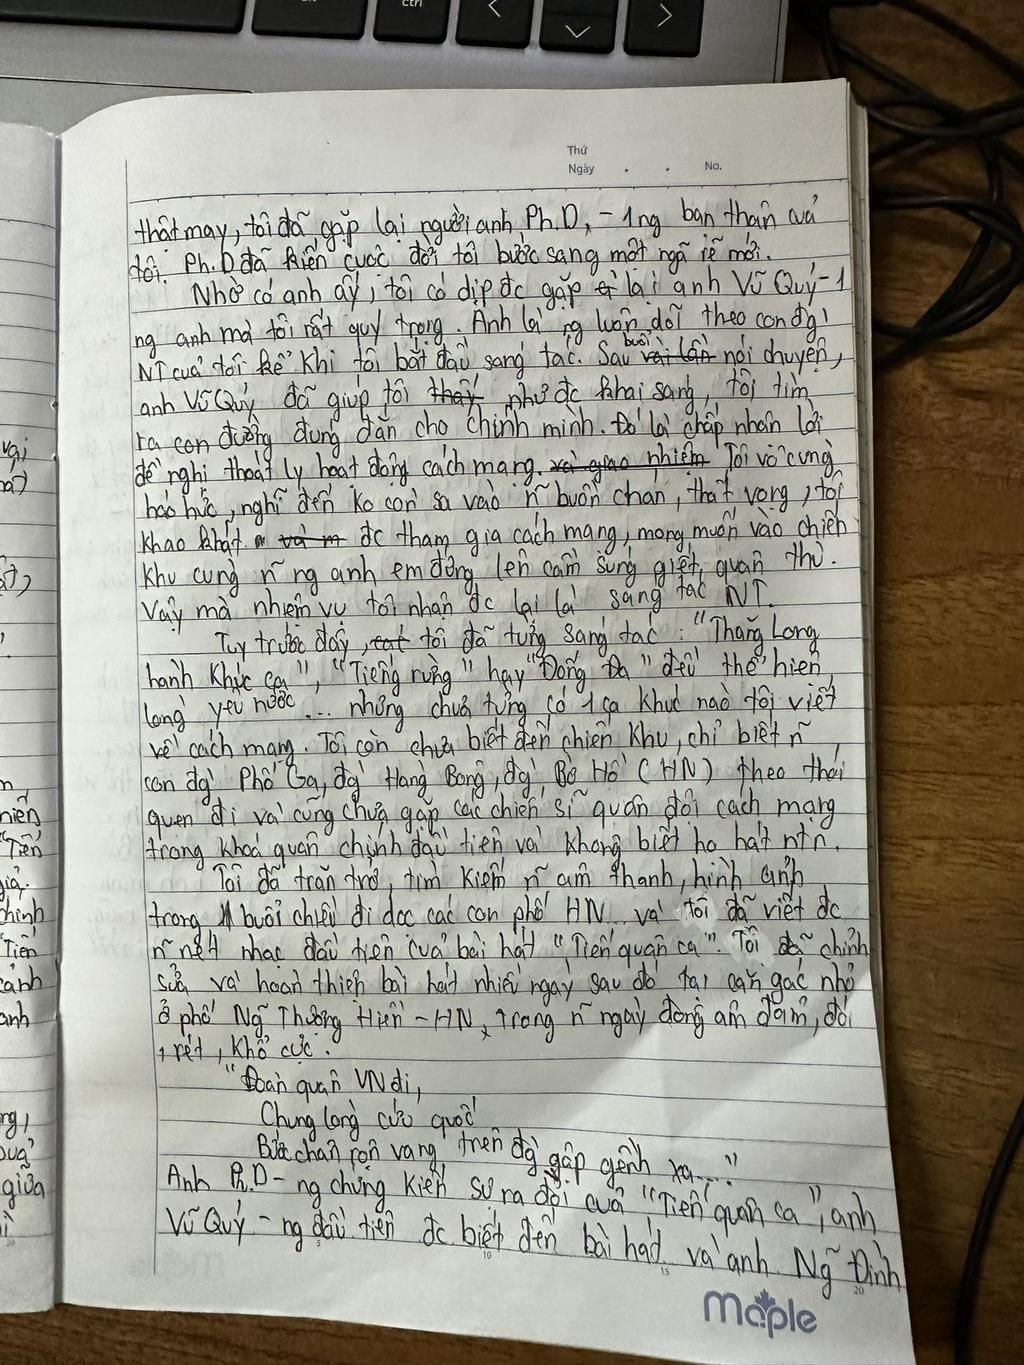 Thứ
Ngày . . No.
thật may, tôi đã gặp lại người anh Ph.D, - 1 ng bạn thân của
tôi. Ph.D đã khiến cuộc đời tôi bước sang một ngã rẽ mới.
Nhờ có anh ấy, tôi có dịp đc gặp lại anh Vũ Quý - 1
ng anh mà tôi rất quý trọng. Anh là ng luôn dõi theo con đg'
NT của tôi kể khi tôi bắt đầu sáng tác. Sau buổi nói chuyện,
anh Vũ Quý đã giúp tôi như đc khai sáng, tôi tìm
ra con đường đúng đắn cho chính mình. Đó là chấp nhận lời
đề nghị thoát ly hoạt động cách mạng. Tôi vô cùng
háo hức, nghĩ đến ko còn sa vào ~n buồn chán, thất vọng, tôi
khao khát đc tham gia cách mạng, mong muốn vào chiến
khu cùng ~n ng anh em đứng lên cầm súng giết quân thù.
Vậy mà nhiệm vụ tôi nhận đc lại là sáng tác NT.
Tuy trước đây, tôi đã từng sáng tác : "Thăng Long
hành khúc ca", "Tiếng rừng" hay "Đống Đa" đều thể hiện
lòng yêu nước ... nhưng chưa từng có 1 ca khúc nào tôi viết
về cách mạng. Tôi còn chưa biết đến chiến khu, chỉ biết ~n
con đg' Phố Ga, đg' Hàng Bông, đg' Bờ Hồ (HN) theo thói
quen đi và cũng chưa gặp các chiến sĩ quân đội cách mạng
trong khoá quân chính đầu tiên và không biết họ hát ntn.
Tôi đã trăn trở, tìm kiếm ~n âm thanh, hình ảnh
trong buổi chiều đi dọc các con phố HN và tôi đã viết đc
~n nét nhạc đầu tiên của bài hát "Tiến quân ca". Tôi đã chỉnh
sửa và hoàn thiện bài hát nhiều ngày sau đó tại căn gác nhỏ
ở phố Ng~ Thượng Hiền - HN, trong ~n ngày đông ảm đạm, đói
, rét, khổ cực.
"Đoàn quân VN đi,
Chung lòng cứu quốc
Bước chân rộn vang trên đg' gập gềnh xa...."
Anh Ph.D - ng chứng kiến sự ra đời của "Tiến quân ca", anh
Vũ Quý - ng đầu tiên đc biết đến bài hát và anh Ng~ Đình
maple